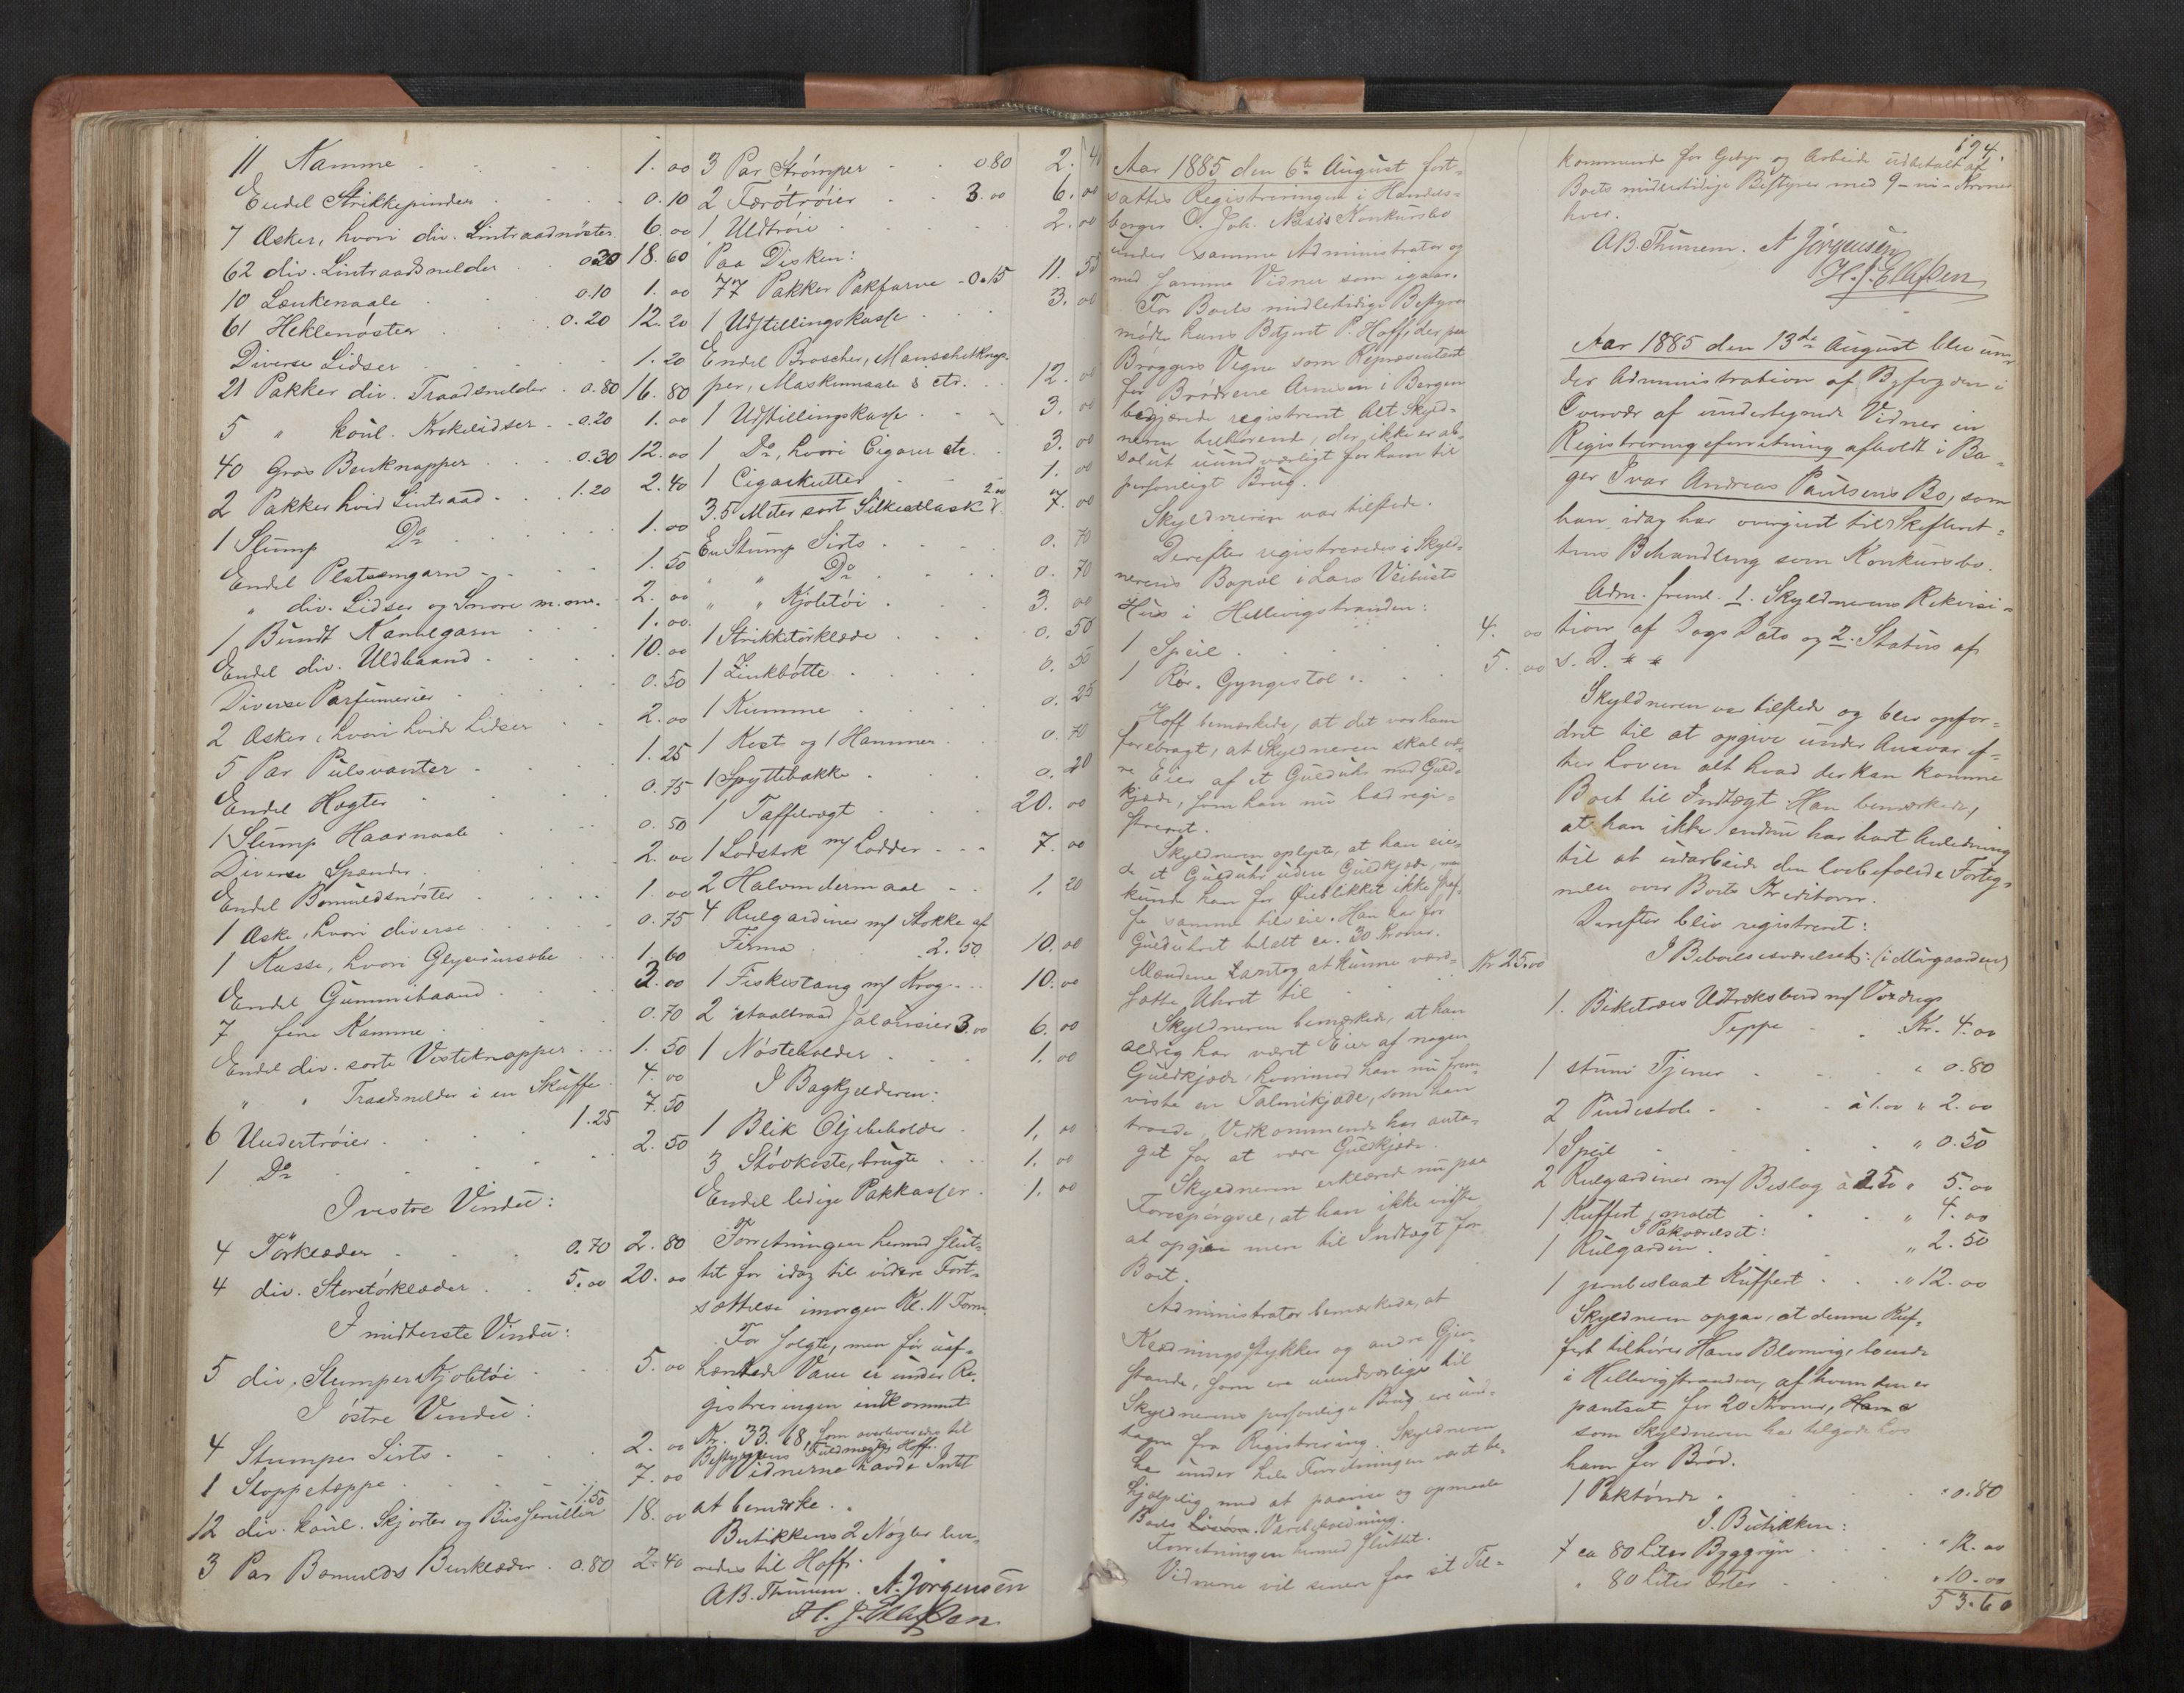 11 Kamme 1.00
Endel Strikkepinder 0.10
7 Æsker, hvori div. Lintraadnøster 6.00
62 div. Lintraadsnelder 0.30 18.60
10 Lænkenaale 0.10 1.00
61 Heklenøster 0.20 12.20
Diverse Lidser 1.20
21 Pakker div. Traadsnelder 0.80 16.80
5 " koul. Krokelidser 0.20 1.00
40 Gros Benknapper 0.30 12.00
2 Pakker hvid Lintraad 1.20 2.40
1 Slump Do 1.00
Endel Platessengarn 1.50
" div. Lidser og Snore m. m. 2.00
1 Bundt Kantegarn 1.00
Endel div. Uldbaand 10.00
Diverse Parfumerier 0.50
2 Æsker, hvori hvide Lidser 2.00
5 Par Pulsvanter 1.25
Endel Hægter 0.75
1 Slump Haarnaale 0.50
Diverse Spænder 2.00
Endel Bomuldsnøster 1.00
1 Æske, hvori diverse 0.75
1 Kasse, hvori Glycerinsæbe 1.60
Endel Gummibaand 3.00
7 fine Kamme 0.70
Endel div. sorte Vesteknapper 1.50
" " Traadsnelder i en Skuffe 4.00
6 Undertrøier 1.25 7.50
1 Do 2.50
I vestre Vindu:
4 Tørklæder 0.70 2.80
4 div. Støretørklæder 5.00 20.00
I midterste Vindu:
5 div. Slumper Kjoletøi 5.00
I østre Vindu:
4 Slumper Sirts 2.00
1 Stoppetæppe 7.00
12 div. koul. Skjorter og Busseruller 1.50 18.00
3 Par Bomulds Benklæder 0.80 2.40
3 Par Strømper 0.80 2.40
2 Færøtrøier 3.00 6.00
1 Uldtrøie 2.00
Paa Disken:
77 Pakker Pakfarve 0.15 11.55
1 Udstillingskasse 3.00
Endel Broscher, Manschetknap-
per, Maskinnaale etc. 12.00
1 Udstillingskasse 3.00
1 Do, hvori Cigarer etc. 3.00
1 Cigarkutter 1.00
3.5 Meter sort Silkeatlask 2.00 7.00
En Slump Sirts 0.70
" " Do 0.70
" " Kjoletøi 3.00
1 Strikketørklæde 0.50
1 Zinkbøtte 0.50
1 Kumme 0.25
1 Kost og 1 Hammer 0.70
1 Spyttebakke 0.20
1 Taffelvægt 20.00
1 Lodstok m/ Lodder 7.00
2 Halvmdermaal 1.20
4 Rulgardiner m/ Stokke af
Firma 2.50 10.00
1 Fiskestang m/ Krog 10.00
2 Staaltraad Jalousier 3.00 6.00
1 Nøsteholder 1.00
I Bagkjelderen:
1 Blik Oljebeholder 1.00
3 Støvkoste, brugte 1.00
Endel ledige Pakkasser 1.00
Forretningen hermed slut-
tet for idag til videre Fort-
sættelse imorgen Kl. 11 Form.
For solgte, men før uaf-
hændede Varer er under Re-
gistreringen indkommet
Kr. 33.68, som overleveredes til
Bestyrerens Fuldmægtig Hoff.
Vidnerne havde Intet
at bemærke.
Butikkens 2 Nøgler leve-
redes til Hoff.
AB. Thunem. N. Jørgensen
H. J. Ellefsen
Aar 1885 den 6te August fort-
sattes Registreringen i Handels-
borger O. Joh. Næss's Konkursbo
under samme Administrator og
med samme Vidner som igaar.
For Boets midlertidige Bestyrer
mødte hans Betjent P. Hoff, der paa
Brøggers Vegne som Repræsentant
for Brødrene Arnesen i Bergen
begjærede registreret Alt Skyld-
neren tilhørende, der ikke er ab-
solut uundværligt for ham til
personligt Brug.
Skyldneren var tilstede.
Derefter registreredes i Skyld-
nerens Bopæl i Lars Veibusts
Hus i Hellevigstranden:
1 Speil 4.00
1 Rør-Gyngestol 5.00
Hoff bemærkede, at det var ham
forebragt, at Skyldneren skal væ-
re Eier af et Guldúhr med Guld-
kjæde, som han nu bad regi-
streret.
Skyldneren oplyste, at han eie-
de et Guldúhr uden Guldkjæde, men
kunde han for Øieblikket ikke skaf-
fe samme tilveie. Han har for
Guldúhret betalt ca. 30 Kroner.
Mændene antog at kunne værd-
sætte Uhret til Kr 25.00
Skyldneren bemærkede, at han
aldrig har været Eier af nogen
Guldkjæde, hvorimod han nu frem-
viste en Talmikjæde, som han
troede, Vedkommende har anta-
get for at være Guldkjæde.
Skyldneren erklærede nu paa
Forespørgsel, at han ikke vidste
at opgive mere til Indtægt for
Boet.
Administrator bemærkede, at
Klædningsstykker og andre Gjen-
stande, som ere uundværlige til
Skyldnerens personlige Brug ere und-
tagne fra Registrering. Skyldneren
har under hele Forretningen været be-
hjælpelig med at paavise og opmaale
Boets Varebeholdning.
Forretningen hermed sluttet.
Vidnerne vil senere faa sit Til-
194.
kommende for Gebyr og Arbeide udbetalt af
Boets midlertidige Bestyrer med 9 - ni - Kroner
hver.
AB. Thunem. N Jørgensen
H. J. Ellefsen
Aar 1885 den 13de August blev un-
der Administration af Byfogden i
Overvær af undertegnede Vidner en
Registreringsforretning afholdt i Ba-
ger Ivar Andreas Paulsens Bo, som
han idag har overgivet til Skifteret-
tens Behandling som Konkursbo.
Adm. freml. 1. Skyldnerens Rekvisi-
tion af Dags Dato og 2. Status af
s. D. * *
Skyldneren var tilstede og blev opfor-
dret til at opgive under Ansvar ef-
ter Loven alt hvad der kan komme
Boet til Indtægt. Han bemærkede,
at han ikke endnu har havt Anledning
til at udarbeide den lovbefalede Forteg-
nelse over Boets Kreditorer.
Derefter blev registreret:
I Beboelsesværelset: (i Murgaarden)
1. Birketræes Udtræksbord m/ Voxdugs
Teppe Kr. 4.00
1 stum Tjener " 0.80
2 Pindestole à 1.00 " 2.00
1 Speil " 0.50
2 Rulgardiner m/ Beslag à 2.50 " 5.00
1 Kuffert, malet " 4.00
I Pakværelset:
1 Rulgardin " 2.50
1 jernbeslaaet Kuffert " 12.00
Skyldneren opgav, at denne Kuf-
fert tilhører Hans Blomvig, boende
i Hellevigstranden, af hvem den er
pantsat for 20 Kroner,
som Skyldneren har tilgode hos
ham for Brød.
1 Baktønde " 0.80
I Butikken:
+ ca 80 Liter Byggryn " 12.00
" 80 Liter Erter " 10.00
53.60